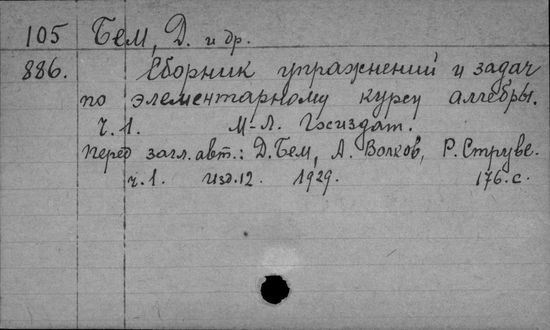 105 Бем, Д. и др.
886. Сборник упражнений и задач
по элементарному курсу алгебры.
ч. 1. М-Л. Госиздат.
Перед загл. авт.: Д. Бем, А. Волков, Р. Струве.
ч. 1. Изд. 12. 1929. 176. с.